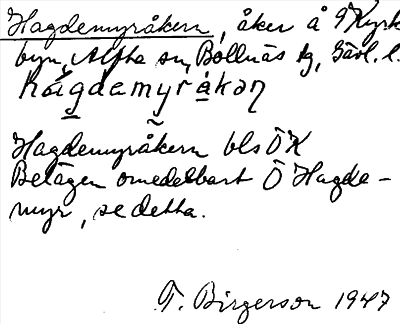 Hagdemyråkern, åker å Kyrk
byn, Alfta sn, Bollnäs tg, Gävl. l.
hagdemyråkəṇ
Hagdemyråkern bls ÖK
Belägen omedelbart Ö Hagde-
myr, se detta.
T. Birgerson 1947